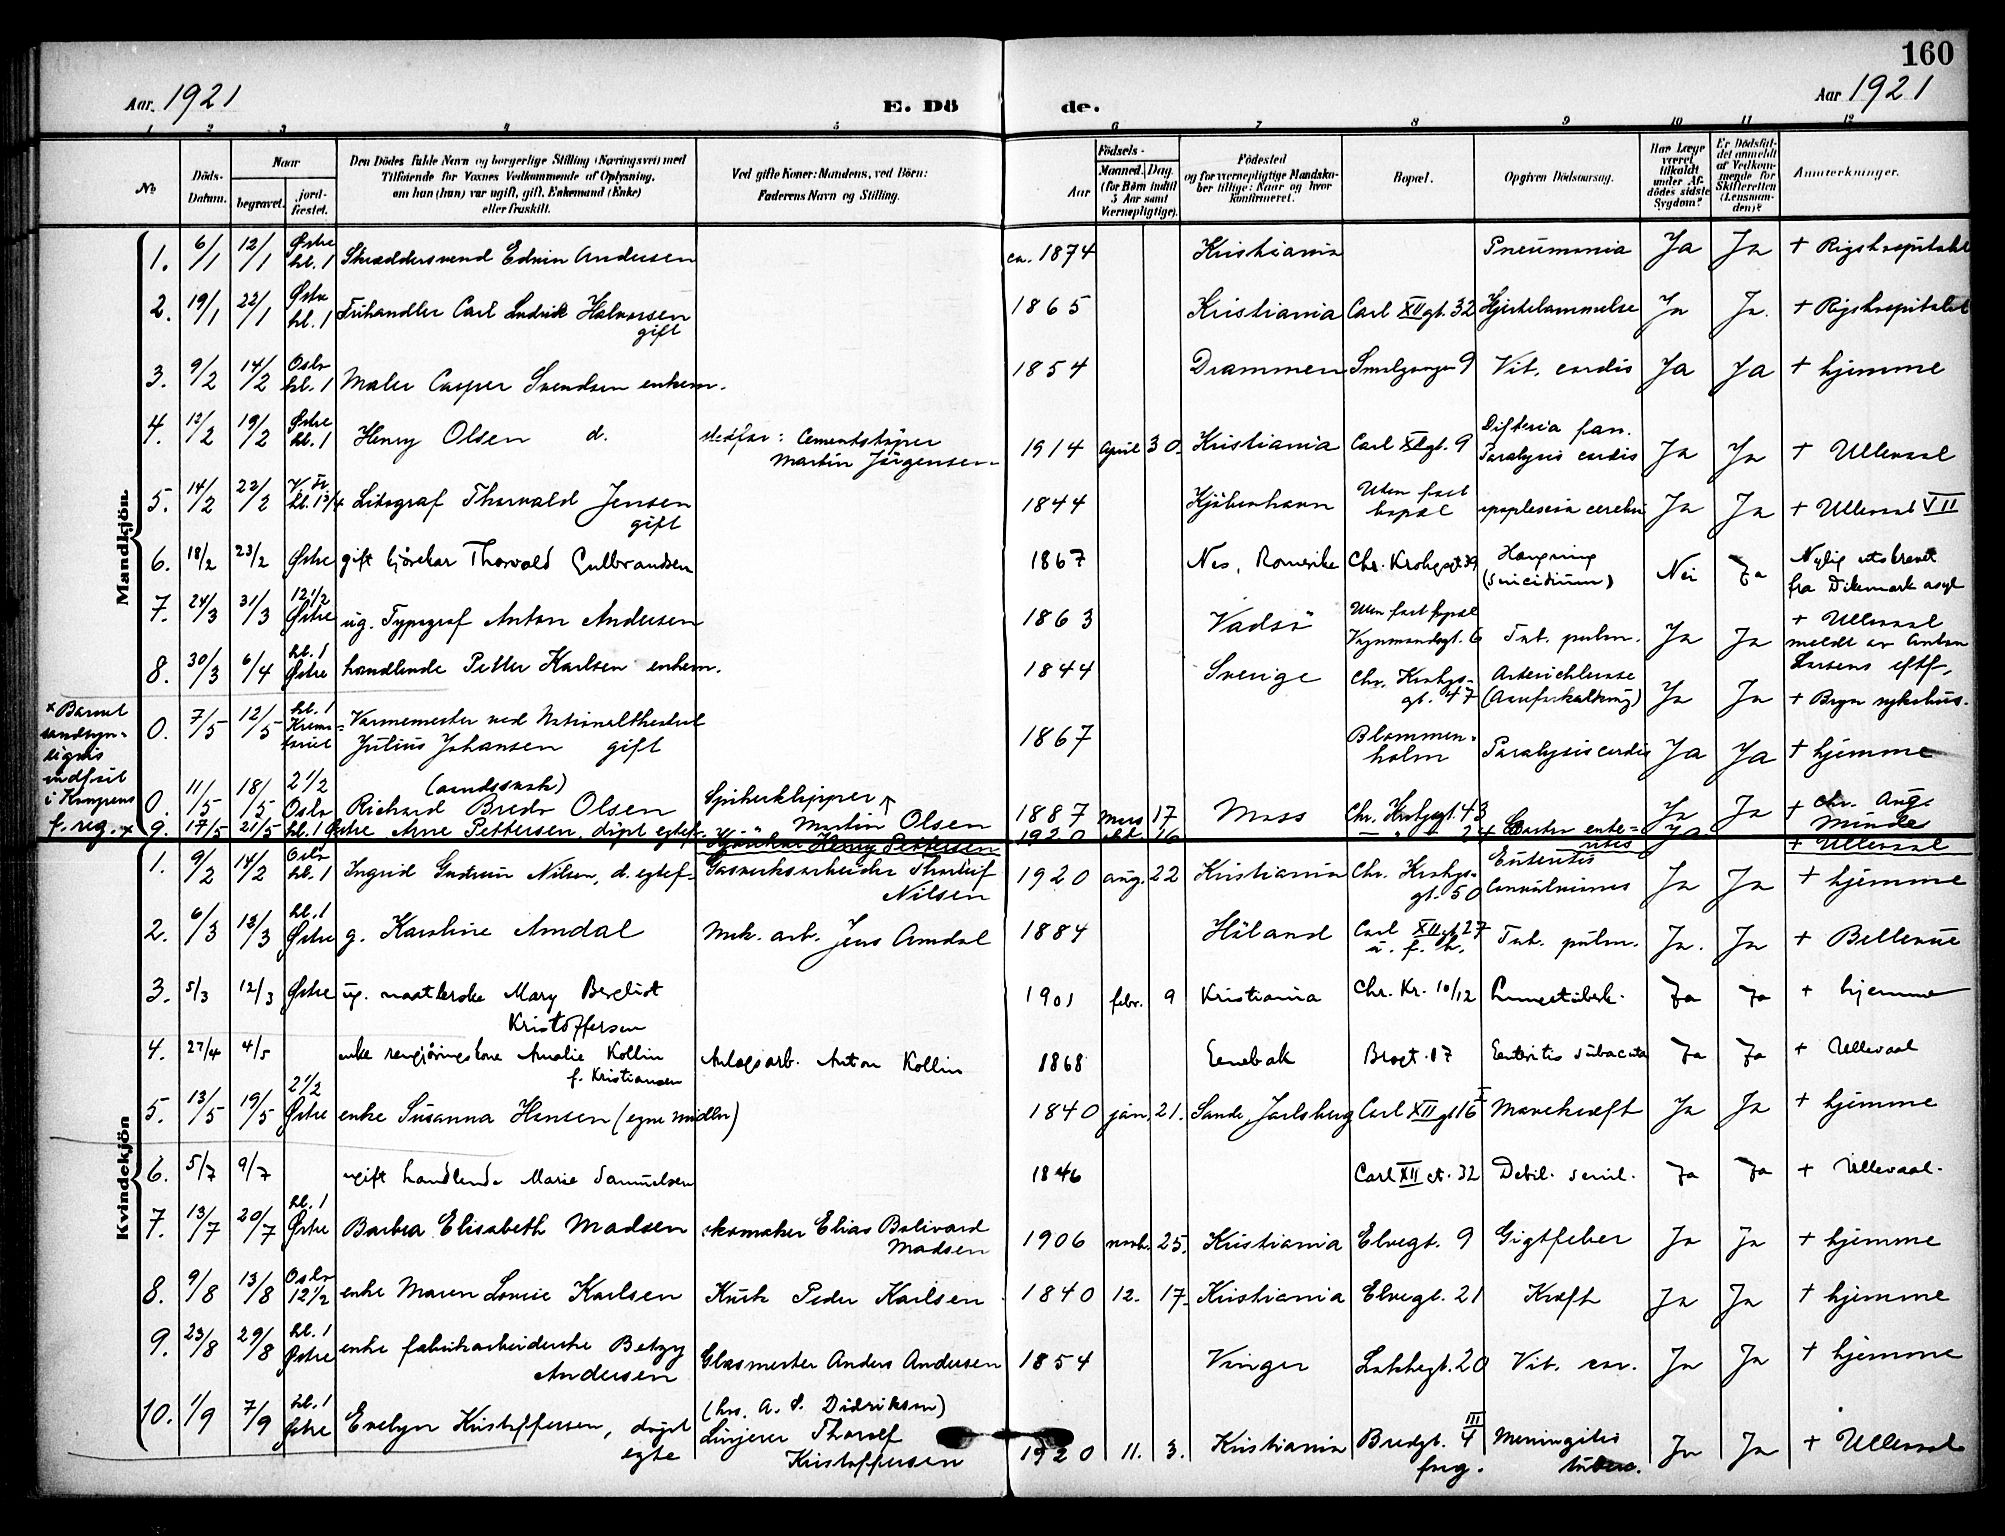 160
Aar. 1921
E. Döde.
Aar 1921
1 2 3 4 5 6 7 8 9 10 11 12
No
Döds-Datum.
Naar
begravet.
jord-fæstet.
Den Dödes fulde Navn og borgerlige Stilling (Næringsvei) med
Tilföiende for Voxnes Vedkommende af Oplysning,
om han (hun) var ugift, gift, Enkemand (Enke)
eller fraskilt.
Ved gifte Koner: Mandens, ved Börn:
Faderens Navn og Stilling.
Födsels-
Aar
Maaned. Dag.
(for Börn indtil
5 Aar samt
Værnepligtige).
Födested
og for værnepligtige Mandska-
ber tillige: Naar og hvor
konfirmeret.
Bopæl.
Opgiven Dödsaarsag.
Har Læge
været
tilkaldt
under Af-
dödes sidste
Sygdom?
Er Dödsfal-
det anmeldt
af Vedkom-
mende for
Skifteretten
(Lensman-
den)?
Anmerkninger.
Mandkjön
1. 6/1 12/1 Østre kl. 1 Skræddersvend Edvin Andersen ca. 1874 Kristiania Pneumonia Ja Ja + Rigshospitalet
2. 19/1 22/1 Østre kl. 1 Frihandler Carl Ludvik Halvorsen gift 1865 Kristiania Carl XII gt. 32 Hjertelammelse Ja Ja. + Rigshospitalet
3. 9/2 14/2 Oslo kl. 1 Maler Casper Svendsen enkem. 1854 Drammen Smalgangen 9 Vit. cordis Ja Ja + hjemme
4. 12/2 19/2 Østre kl. 1 Henry Olsen d. Stedfar: Cementstøper Martin Jörgensen 1914 April 30. Kristiania Carl XII gt. 9 Difteria fau. Paralysis cordis Ja Ja + Ullevaal
5. 14/2 22/2 V. Fr. kl. 1 3/4 Litograf Thorvald Jensen gift 1844 Kjöbenhavn Uten fast bopæl apoplexia cerebri Ja Ja + Ullevaal VII
6. 18/2 23/2 Østre gift kjörekar Thorvald Gulbrandsen 1867 Nes, Romerike Chr. Krohgsgt 39 Hængning (suicidium) Nei Ja Nylig utskrevet fra Dikemark asyl
7. 24/3 31/3 12 1/2 Østre ug. Typograf Anton Andersen 1863 Vadsö Uten fast bopæl Vognmandsgt. 6 Tub. pulm. Ja Ja + Ullevaal meldt av Anton Larsens eftf.
8. 30/3 6/4 kl. 1 Østre handlende Petter Karlsen enkem. 1844 Sverige Chr. Krohgs-gt. 47 (Aareforkalkning) Ja Ja + Bryn sykehus.
x Barnet
sandsyn-
ligvis
indfört
i Kongrens
f. reg. x
0. 7/5 12/5 kl. 1 Krema-toriet Varmemester ved Nationaltheatret Julius Johansen gift 1867 Blommen-holm Paralysis cordis Ja Ja + hjemme
0. 11/5 18/5 2 1/2 Oslo (aandssvak) Richard Bredo Olsen Spikerklipper Martin Olsen 1887 mars 17 Moss Chr. Krohgsgt. 43 Ja Ja + Chr. Aug. Minde
9. 17/5 21/5 kl. 1 Østre Arne Pettersen, döpt egtef. Kjörekar Henry Pettersen 1920 okt. 16 24 Gastro ente-ritis Ja + Ullevaal
Kvindekjön
1. 9/2 14/2 Oslo kl. 1 Ingrid Gudrun Nilsen, d. egtef. Gasverksarbeider Thorleif Nilsen 1920 aug. 22 Kristiania Chr. Krohgs-gt. 50 Enteritis Convulsiones Ja Ja + hjemme
2. 6/3 13/3 kl. 1 Østre g. Karoline Amdal Mek. arb. Jens Amdal 1884 Höland Carl XII gt 27 u. f. h. Tub. pulm. Ja. Ja + Bellevue
3. 5/3 12/3 Østre ug. Mary Bergliot Kristoffersen 1901 febr. 9 Kristiania Chr. Kr. 10/12 Lungetuberk. Ja Ja + hjemme
4. 27/4 4/5 enke rengjöringskone Amalie Kollin f. Kristiansen Anlægsarb. Anton Kollin 1868 Enebak Brogt. 17 Enteritis subacuta Ja Ja + Ullevaal
5. 13/5 19/5 2 1/2 Østre enke Susanna Hansen (egne midler) 1840 jan. 21. Sande, Jarlsberg Carl XII gt 16 I Mavekræft Ja Ja + hjemme
6. 5/7 9/7 ugift handlende Marie Samuelsen 1846 Carl XII gt. 32 Debil. senil. Ja Ja + Ullevaal.
7. 13/7 20/7 kl. 1 Østre Barbra Elisabeth Madsen skomaker Elias Bolivard Madsen 1906 novb. 25. Kristiania Elvegt. 9 Gigtfeber Ja Ja + hjemme
8. 9/8 13/8 Oslo 12 1/2 enke Maren Lovise Karlsen Kusk Peder Karlsen 1840 12. 17. Kristiania Elvegt. 21 Kræft Ja Ja + hjemme
9. 23/8 29/8 kl. 1 Østre enke fabrikarbeiderske Betzy Andersen Glasmester Anders Andersen 1854 Vinger Lakkegt. 20 Vit. cor. Ja Ja + hjemme
10. 1/9 7/9 kl. 1 Østre Evelyn Kristoffersen, döpt egte (hos A. S. Didriksen) Linjerer Thorolf Kristoffersen 1920 11. 3. Kristiania Bredgt. 4 III Meningitis tuberc. Ja Ja + Ullevaal